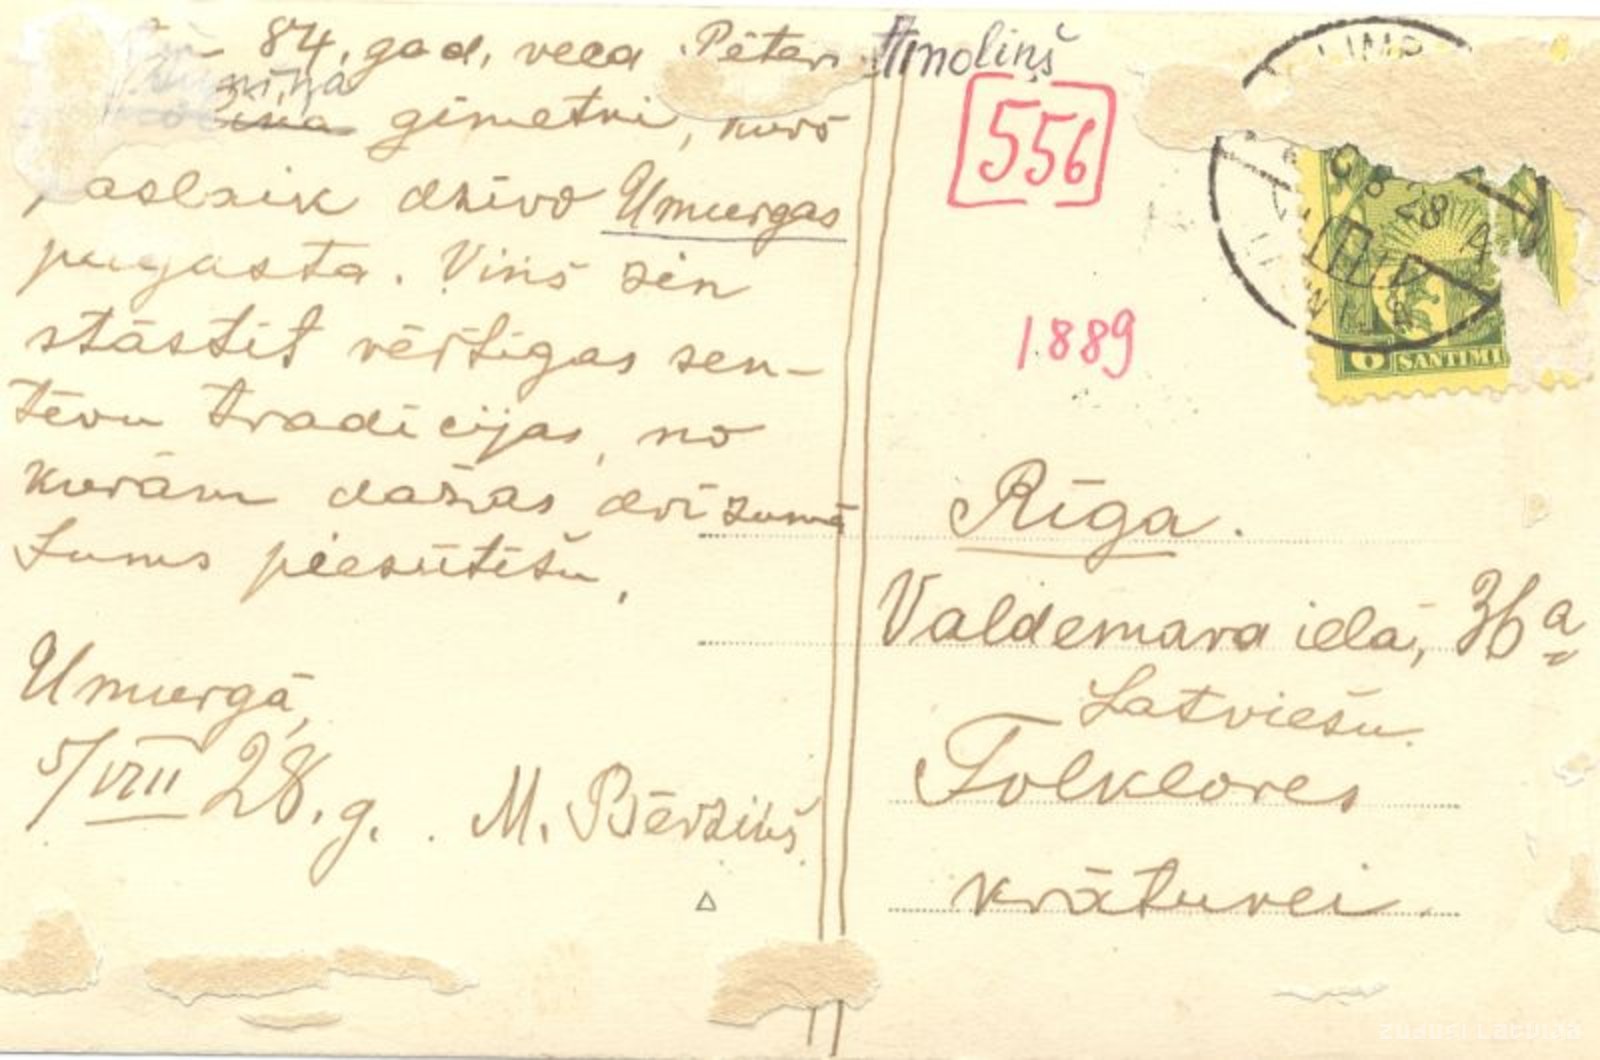 84. gad. veca Pēter Amoliņš
niņa
ģimetni, kurš
paslaik dzīvo Umurgas
pagasta. Viņš zin
stāstīt vērtīgas sen-
tēvu tradicijas, no
kurām dažas drīzumā
Jums piesūtīšu.
Umurgā,
5/VIII 28. g. M. Bērziņš
556
1889
LIMB
28
6 SANTIMI
Rīga.
Valdemara ielā, 36a
Latviešu
Folklores
krātuvei.
zudusi Latvija